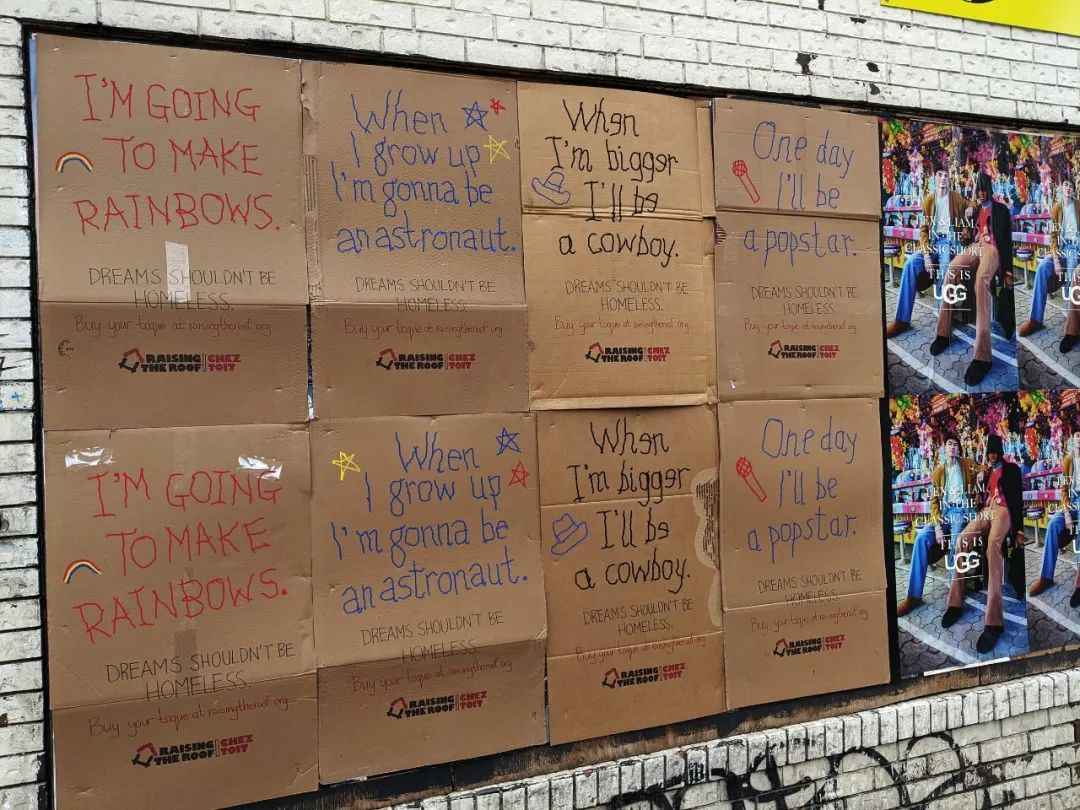 I'M GOING
TO MAKE
RAINBOWS.
DREAMS SHOULDN'T BE
HOMELESS.
Buy your toque at raisingtheroof.org
RAISING CHEZ
THE ROOF TOIT
When
I grow up
I'm gonna be
an astronaut.
DREAMS SHOULDN'T BE
HOMELESS.
Buy your toque at raisingtheroof.org
RAISING CHEZ
THE ROOF TOIT
When
I'm bigger
I'll be
a cowboy.
DREAMS SHOULDN'T BE
HOMELESS.
Buy your toque at raisingtheroof.org
RAISING CHEZ
THE ROOF TOIT
One day
I'll be
a popstar.
DREAMS SHOULDN'T BE
HOMELESS.
Buy your toque at raisingtheroof.org
RAISING CHEZ
THE ROOF TOIT
LIAM
IN THE
CLASSIC SHORT
THIS IS
UGG
I'M GOING
TO MAKE
RAINBOWS.
DREAMS SHOULDN'T BE
HOMELESS.
Buy your toque at raisingtheroof.org
RAISING CHEZ
THE ROOF TOIT
When
I grow up
I'm gonna be
an astronaut.
DREAMS SHOULDN'T BE
HOMELESS.
Buy your toque at raisingtheroof.org
RAISING CHEZ
THE ROOF TOIT
When
I'm bigger
I'll be
a cowboy.
DREAMS SHOULDN'T BE
HOMELESS.
Buy your toque at raisingtheroof.org
RAISING CHEZ
THE ROOF TOIT
One day
I'll be
a popstar.
DREAMS SHOULDN'T BE
HOMELESS.
Buy your toque at raisingtheroof.org
RAISING CHEZ
THE ROOF TOIT
LIAM
IN THE
CLASSIC SHORT
THIS IS
UGG